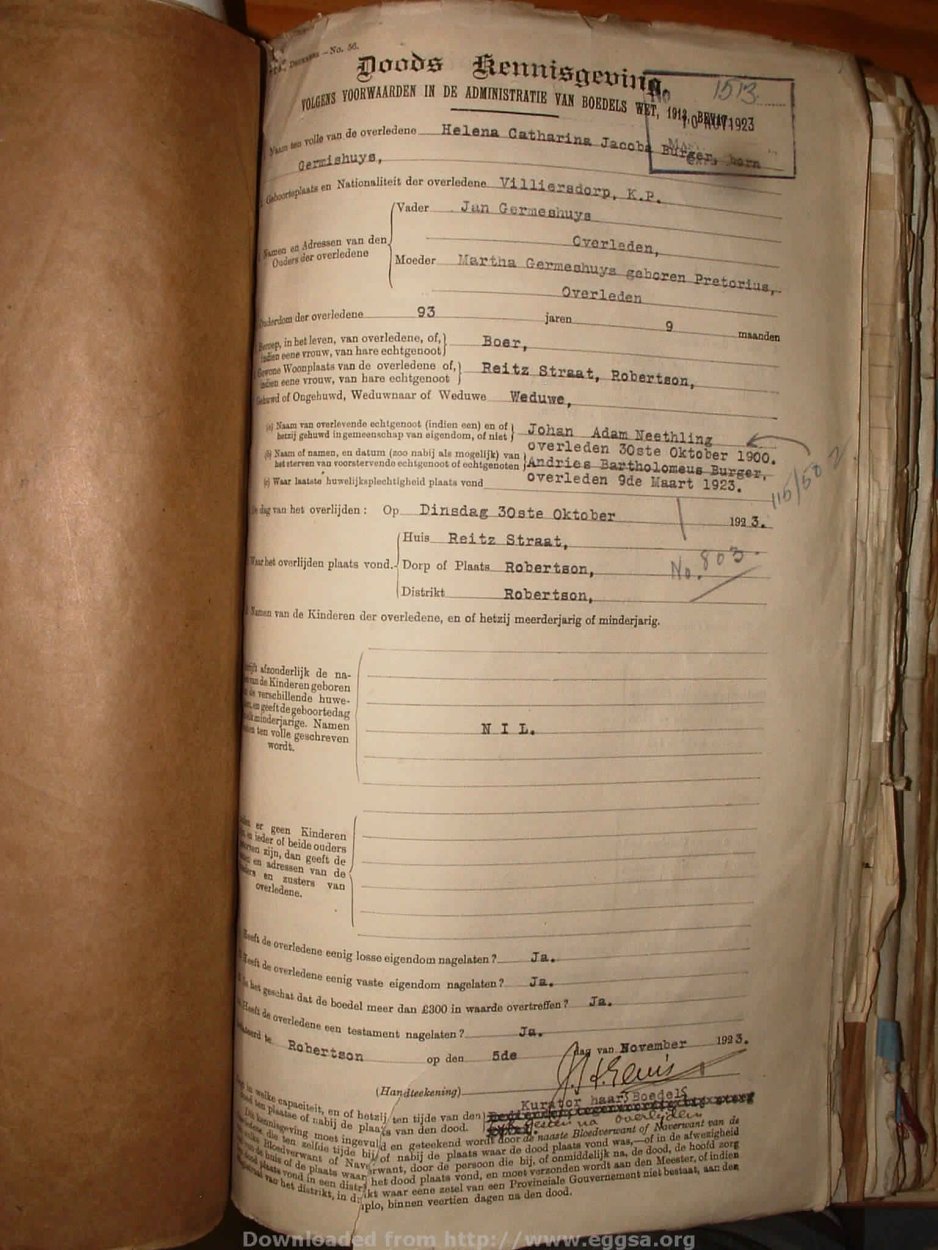 No. 56.
Doods Kennisgeving.
VOLGENS VOORWAARDEN IN DE ADMINISTRATIE VAN BOEDELS WET, 1913,
No 1513
10 NOV 1923
Naam ten volle van de overledene Helena Catharina Jacoba Burger, born
Germishuys,
Geboorteplaats en Nationaliteit der overledene Villiersdorp, K.P.
Vader Jan Germeshuys
Overleden,
Namen en Adressen van den
Ouders der overledene
Moeder Martha Germeshuys geboren Pretorius,
Overleden
Ouderdom der overledene 93 jaren 9 maanden
Beroep, in het leven, van overledene, of,
indien eene vrouw, van hare echtgenoot
Boer,
Gewone Woonplaats van de overledene of,
indien eene vrouw, van hare echtgenoot
Reitz Straat, Robertson,
Gehuwd of Ongehuwd, Weduwnaar of Weduwe Weduwe,
(a) Naam van overlevende echtgenoot (indien een) en of
hetzij gehuwd in gemeenschap van eigendom, of niet
Johan Adam Neethling
overleden 30ste Oktober 1900.
(b) Naam of namen, en datum (zoo nabij als mogelijk) van
het sterven van voorstervende echtgenoot of echtgenoten
Andries Bartholomeus Burger,
(c) Waar laatste huwelijksplechtigheid plaats vond
overleden 9de Maart 1923.
De dag van het overlijden: Op Dinsdag 30ste Oktober 1923.
Huis Reitz Straat,
Waar het overlijden plaats vond. Dorp of Plaats Robertson,
No. 803
Distrikt Robertson,
Namen van de Kinderen der overledene, en of hetzij meerderjarig of minderjarig.
afzonderlijk de na-
van de Kinderen geboren
de verschillende huwe-
en geeft de geboortedag
minderjarige. Namen
ten volle geschreven
wordt.
NIL.
er geen Kinderen
ieder of beide ouders
zijn, dan geeft de
en adressen van de
en zusters van
overledene.
Heeft de overledene eenig losse eigendom nagelaten? Ja.
Heeft de overledene eenig vaste eigendom nagelaten? Ja.
Is het geschat dat de boedel meer dan £300 in waarde overtreffen? Ja.
Heeft de overledene een testament nagelaten? Ja.
Gedateerd te Robertson op den 5de dag van November 1923.
(Handteekening)
Kurator haar Boedel
in welke capaciteit, en of hetzij ten tijde van den
dood ten plaatse of nabij de plaats van den dood.
na overlyden
Dit kennisgeving moet ingevuld en geteekend wordt door de naaste Bloedverwant of Naverwant van de
overledene, die ten zelfde tijde bij of nabij de plaats waar de dood plaats vond was,—of in de afwezigheid
Bloedverwant of Naverwant, door de persoon die bij, of onmiddelijk na, de dood, de hoofd zorg
de huis of de plaats waar het dood plaats vond, en moet verzonden wordt aan den Meester, of indien
dood plaats vond in een distrikt waar eene zetel van een Provinciale Gouvernement niet bestaat, aan den
van het distrikt, in duplo, binnen veertien dagen na den dood.
Downloaded from http://www.eggsa.org